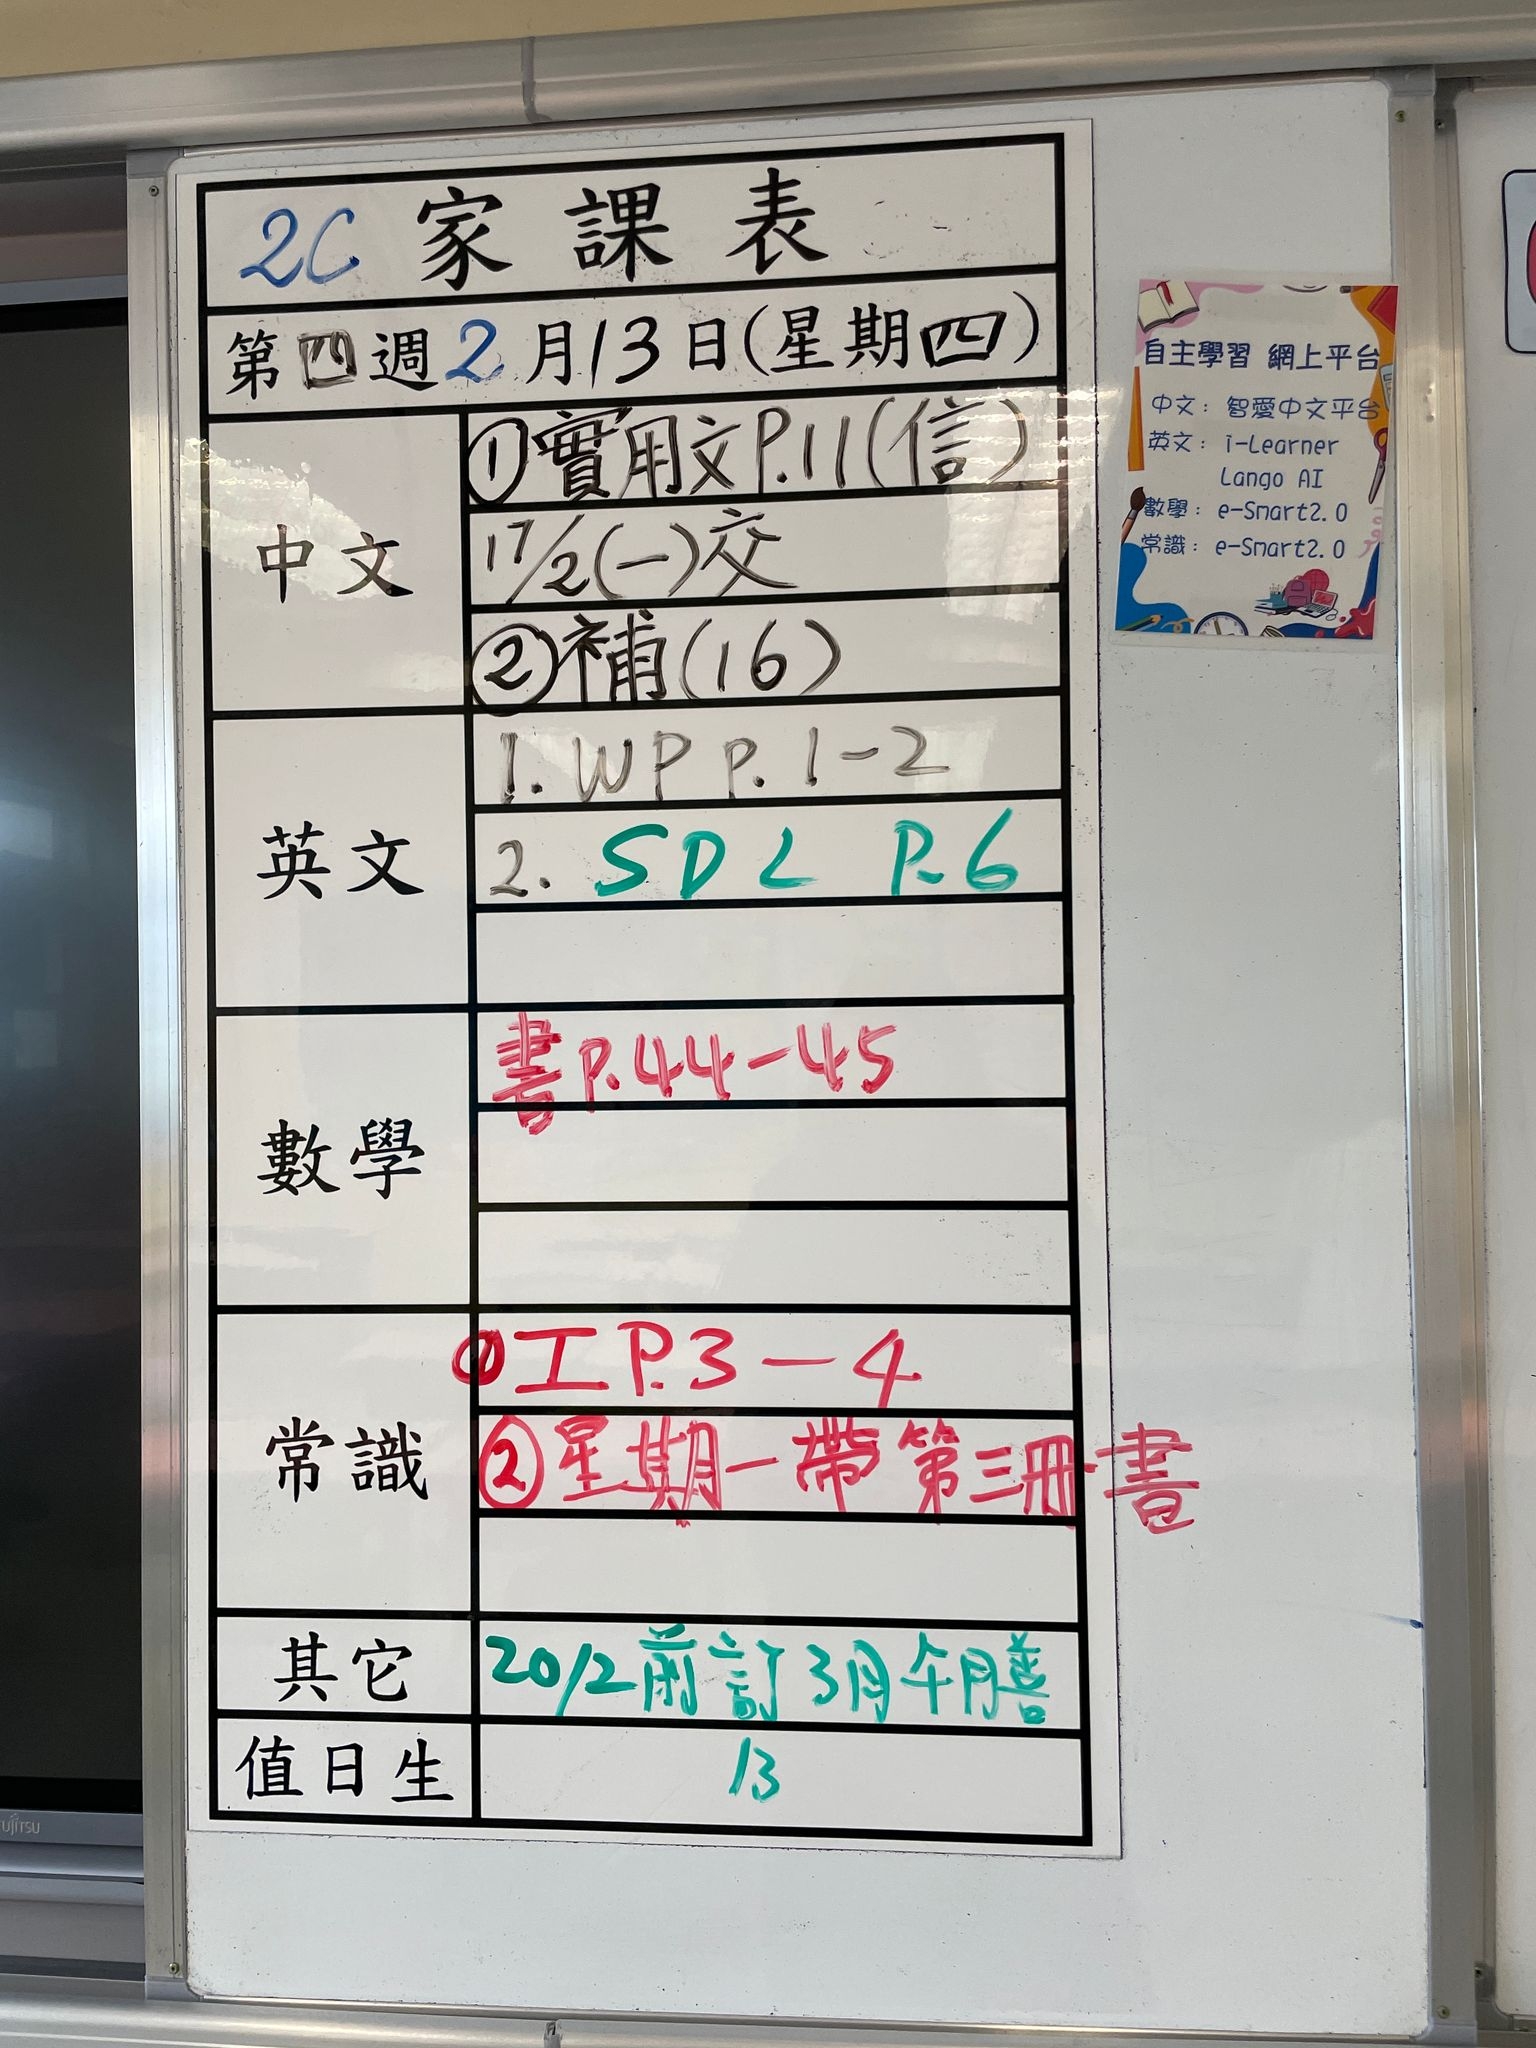 2C 家課表
第四週 2月13日(星期四)
中文
①實用文P.11(信)
17/2(一)交
②補(16)
英文
1. WP P. 1-2
2. SDL P.6
數學
書P.44-45
常識
①工P.3-4
②星期一帶第三冊書
其它
20/2前訂3月午膳
值日生
13
自主學習 網上平台
中文: 智愛中文平台
英文: i-Learner
Lango AI
數學: e-Smart2.0
常識: e-Smart2.0
FUJITSU